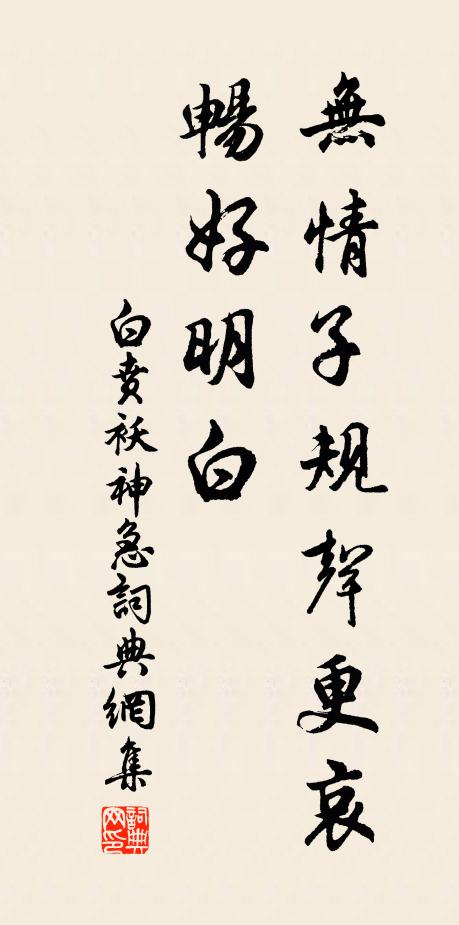 無情子規聲更哀
暢好明白
白賁袄神急詞典網集
詞典
网印